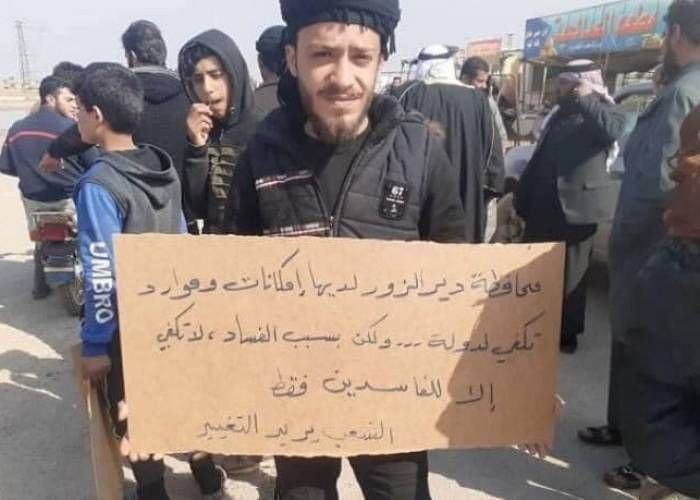 محافظة ديرالزور لديها إمكانات وموارد
تكفي لدولة ... ولكن بسبب الفساد، لا تكفي
إلا للفاسدين فقط
الشعب يريد التغيير
UMBRO
67